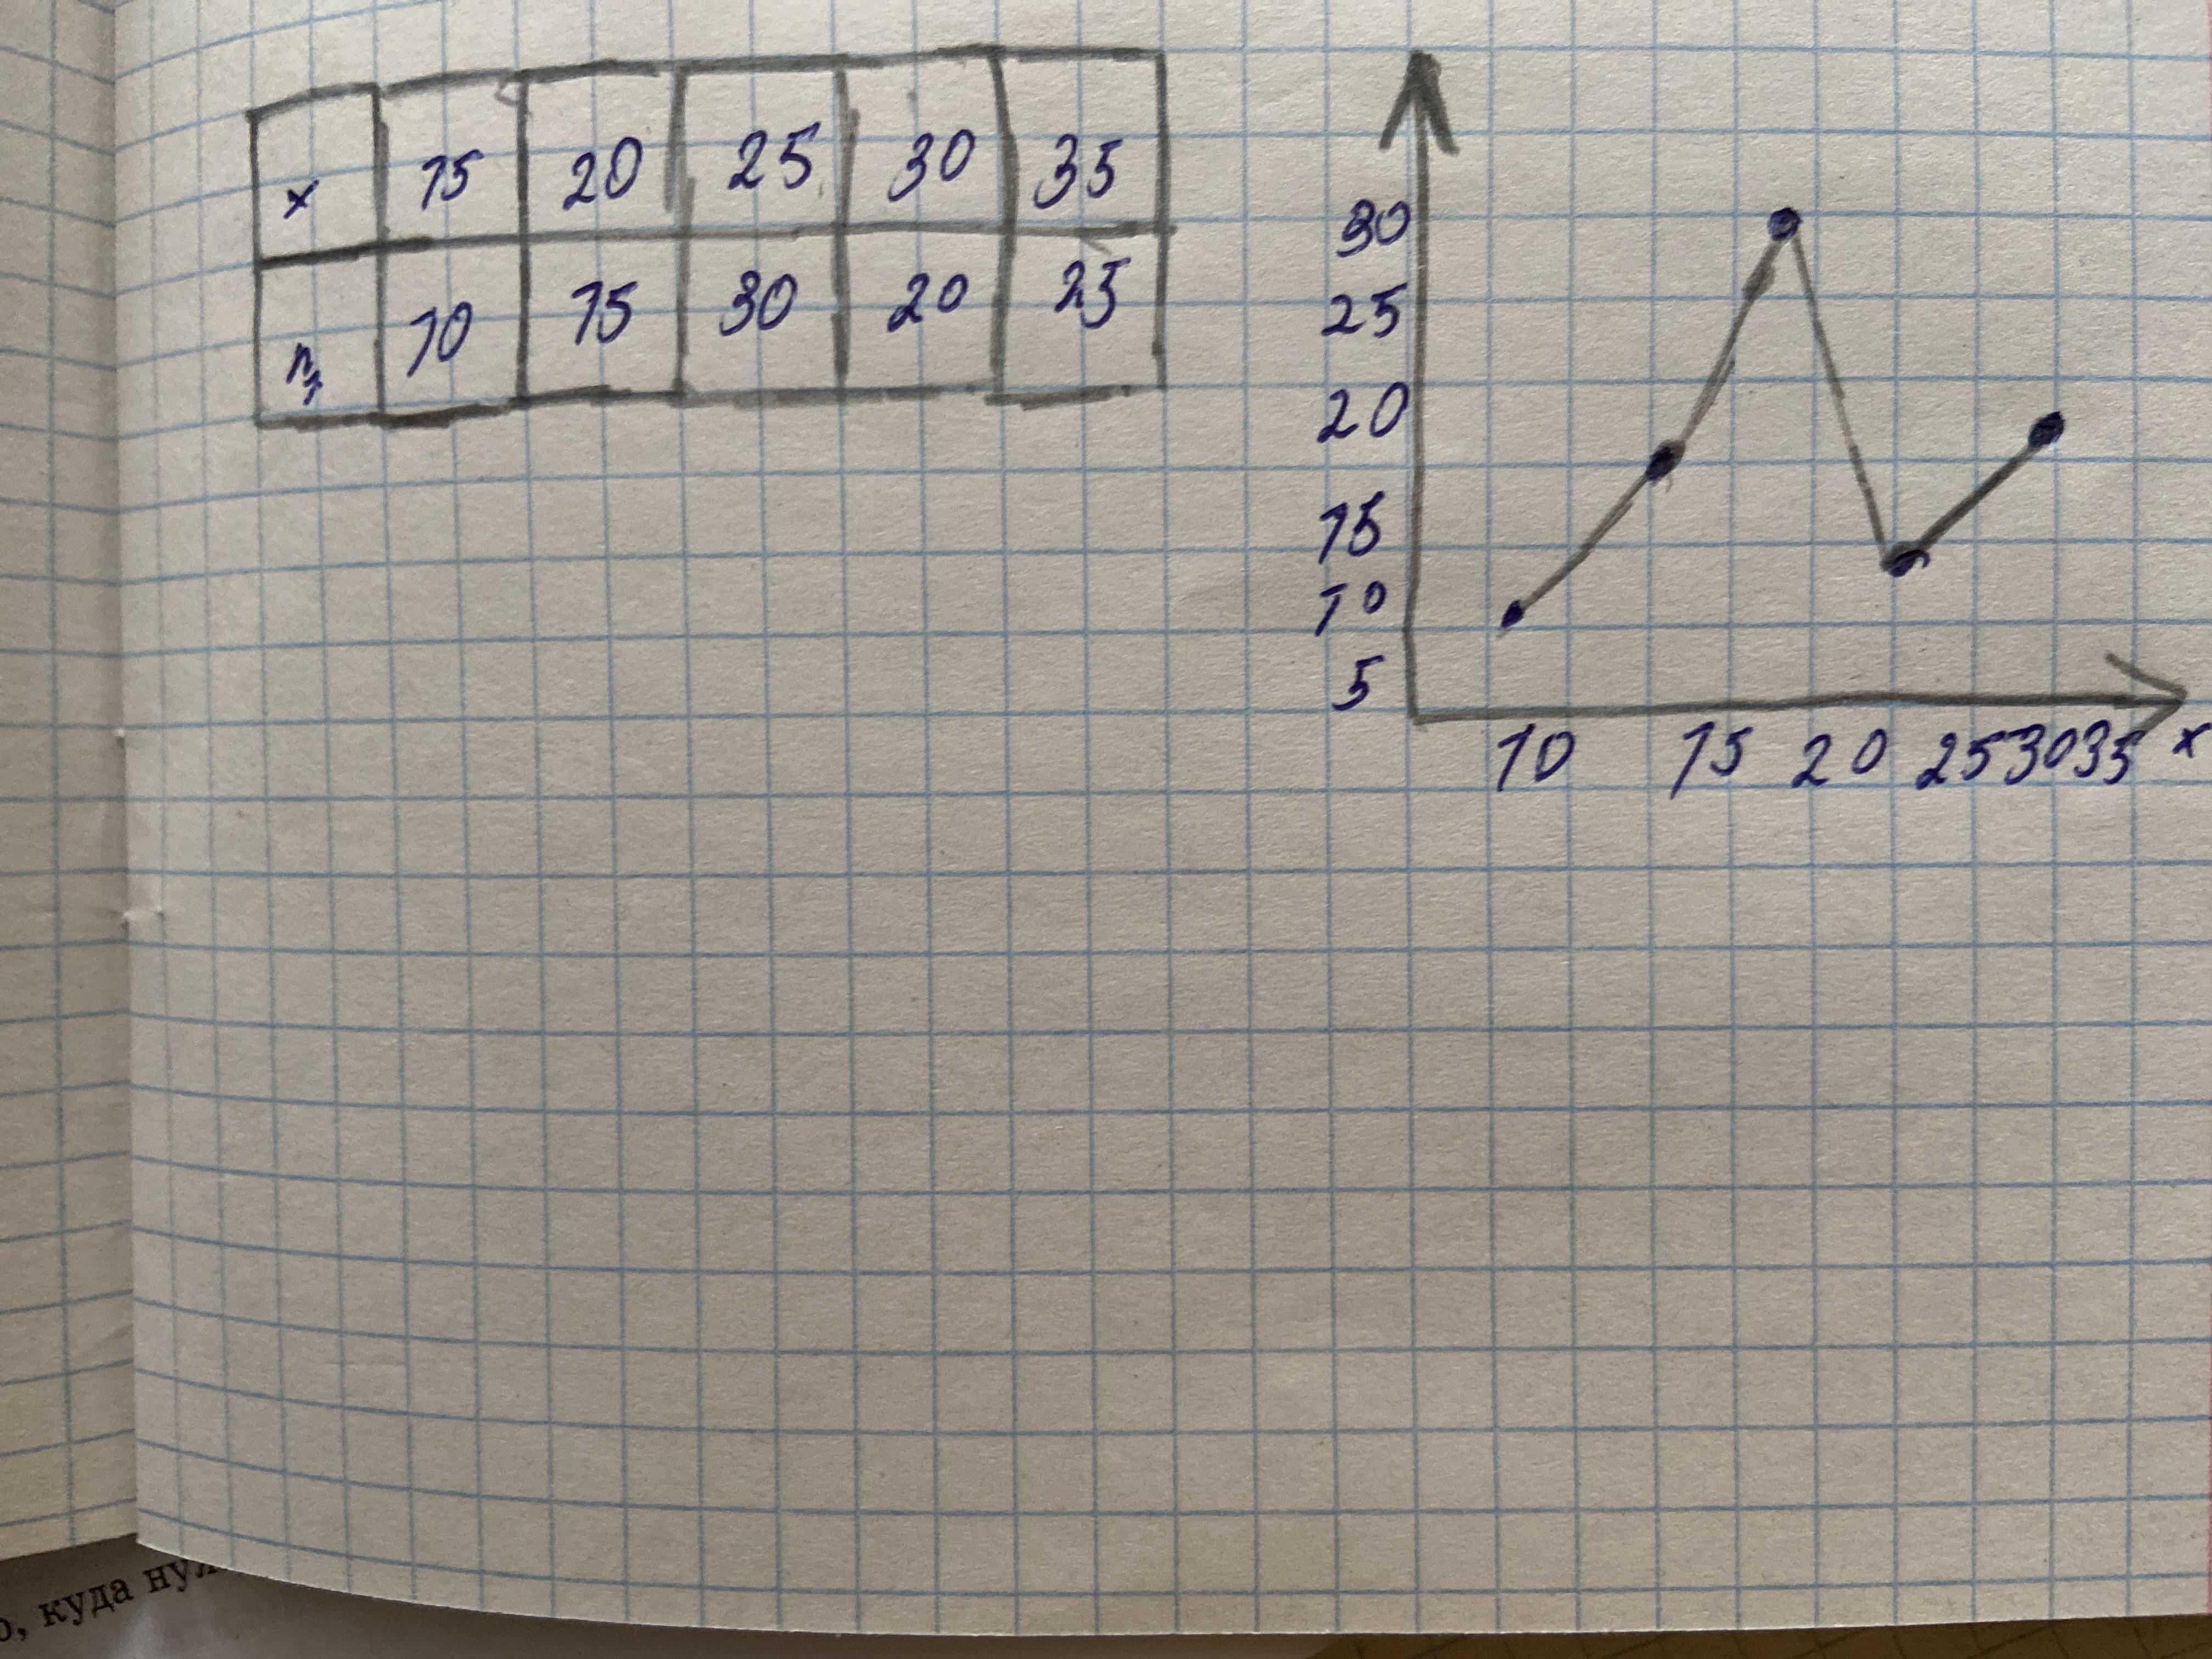 x 15 20 25 30 35
n₁ 10 15 30 20 25
30
25
20
15
10
5
10 15 20 25 30 35 x
о, куда нуж